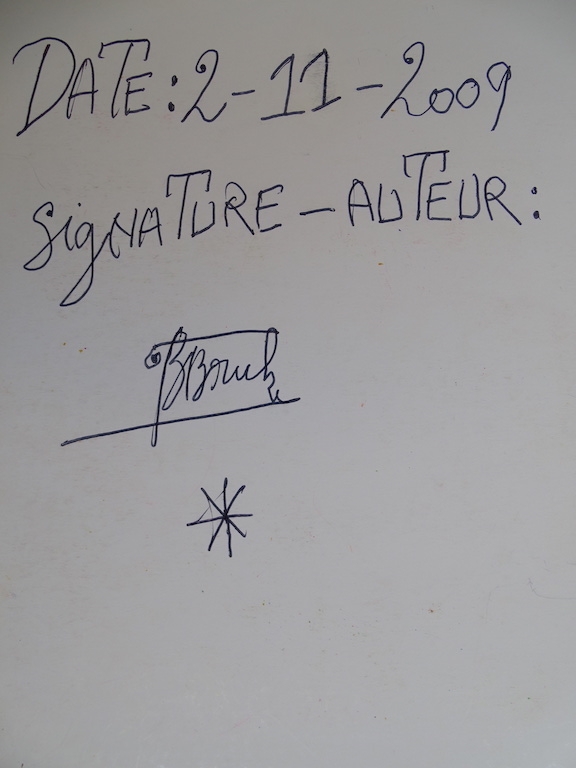 DATE: 2-11-2009
SIGNATURE - AUTEUR: